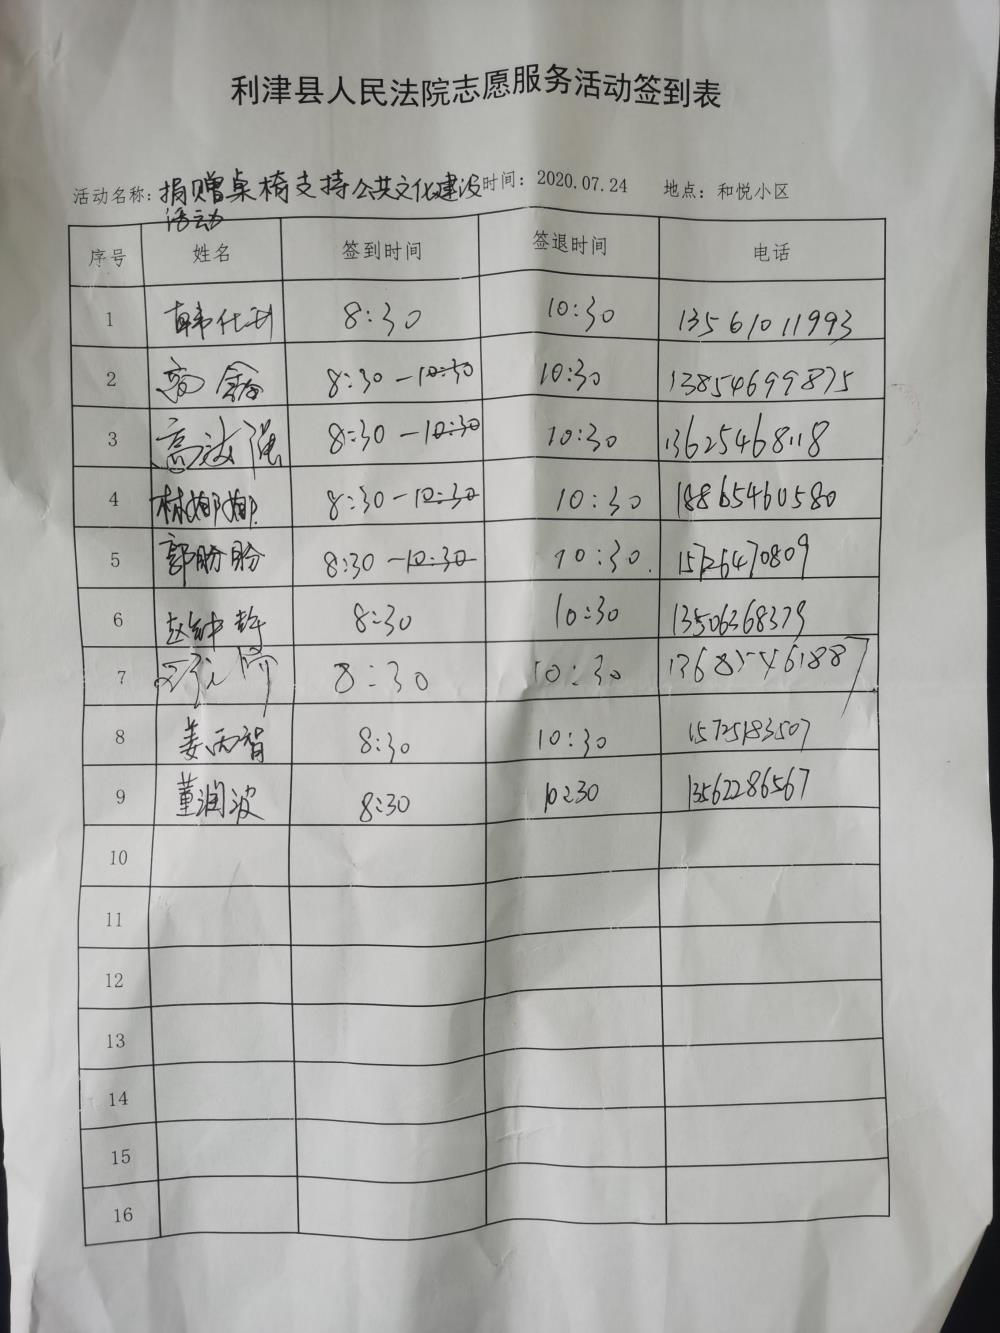 利津县人民法院志愿服务活动签到表
活动名称：捐赠桌椅支持公共文化建设 时间：2020.07.24 地点：和悦小区
活动
序号 姓名 签到时间 签退时间 电话
1 韩仕刊 8:30 10:30 13561011993
2 高鑫 8:30-10:30 10:30 13854699875
3 高波强 8:30-10:30 10:30 13625468118
4 林娜娜 8:30-10:30 10:30 18865460580
5 郭盼盼 8:30-10:30 10:30. 15126470809
6 赵钟静 8:30 10:30 13506368379
7 8:30 10:30 13685461887
8 姜丙智 8:30 10:30 15725183507
9 董润波 8:30 10:30 13562286567
10
11
12
13
14
15
16